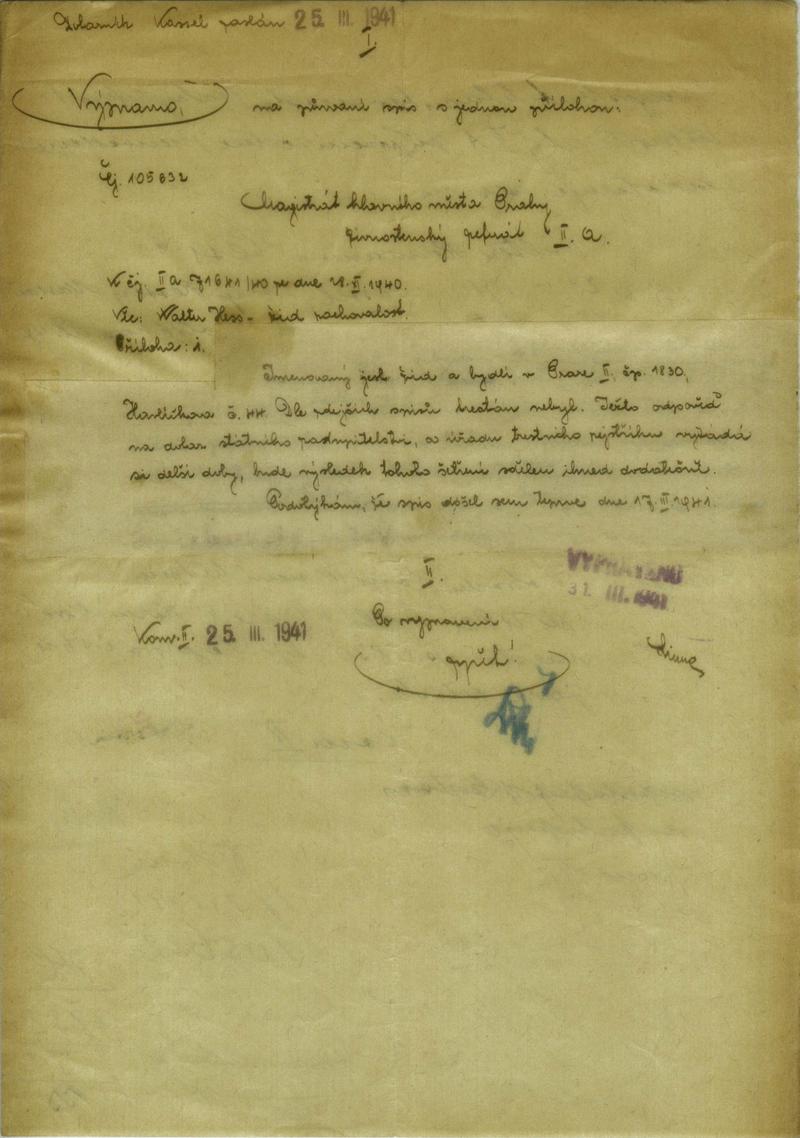 Kassel poslán 25. III. 1941
I.
Význam. na původní spis s jednou přílohou:
Čj. 105832
Magistrát hlavního města Prahy
živnostenský referát II. A.
K čj. II a 71641/40 ze dne 1940.
Věc: Walter Hess - žid zachovalost.
Příloha: 1.
Jmenovaný jest žid a bydlí v Praze II. čp. 1830,
Havlíčkova č. 44. Dle zdejších spisů trestán nebyl. Ježto odpověď
na dotaz státního zastupitelství, a úřadu trestního rejstříku vyžádá
si delší doby, bude výsledek tohoto šetření sdělen ihned dodatečně.
Podotýkám, že spis došel sem teprve dne 17. III. 1941.
II.
VYPRAVENO
31. III. 1941
Po vypravení
Kom. II. 25. III. 1941
zpět!